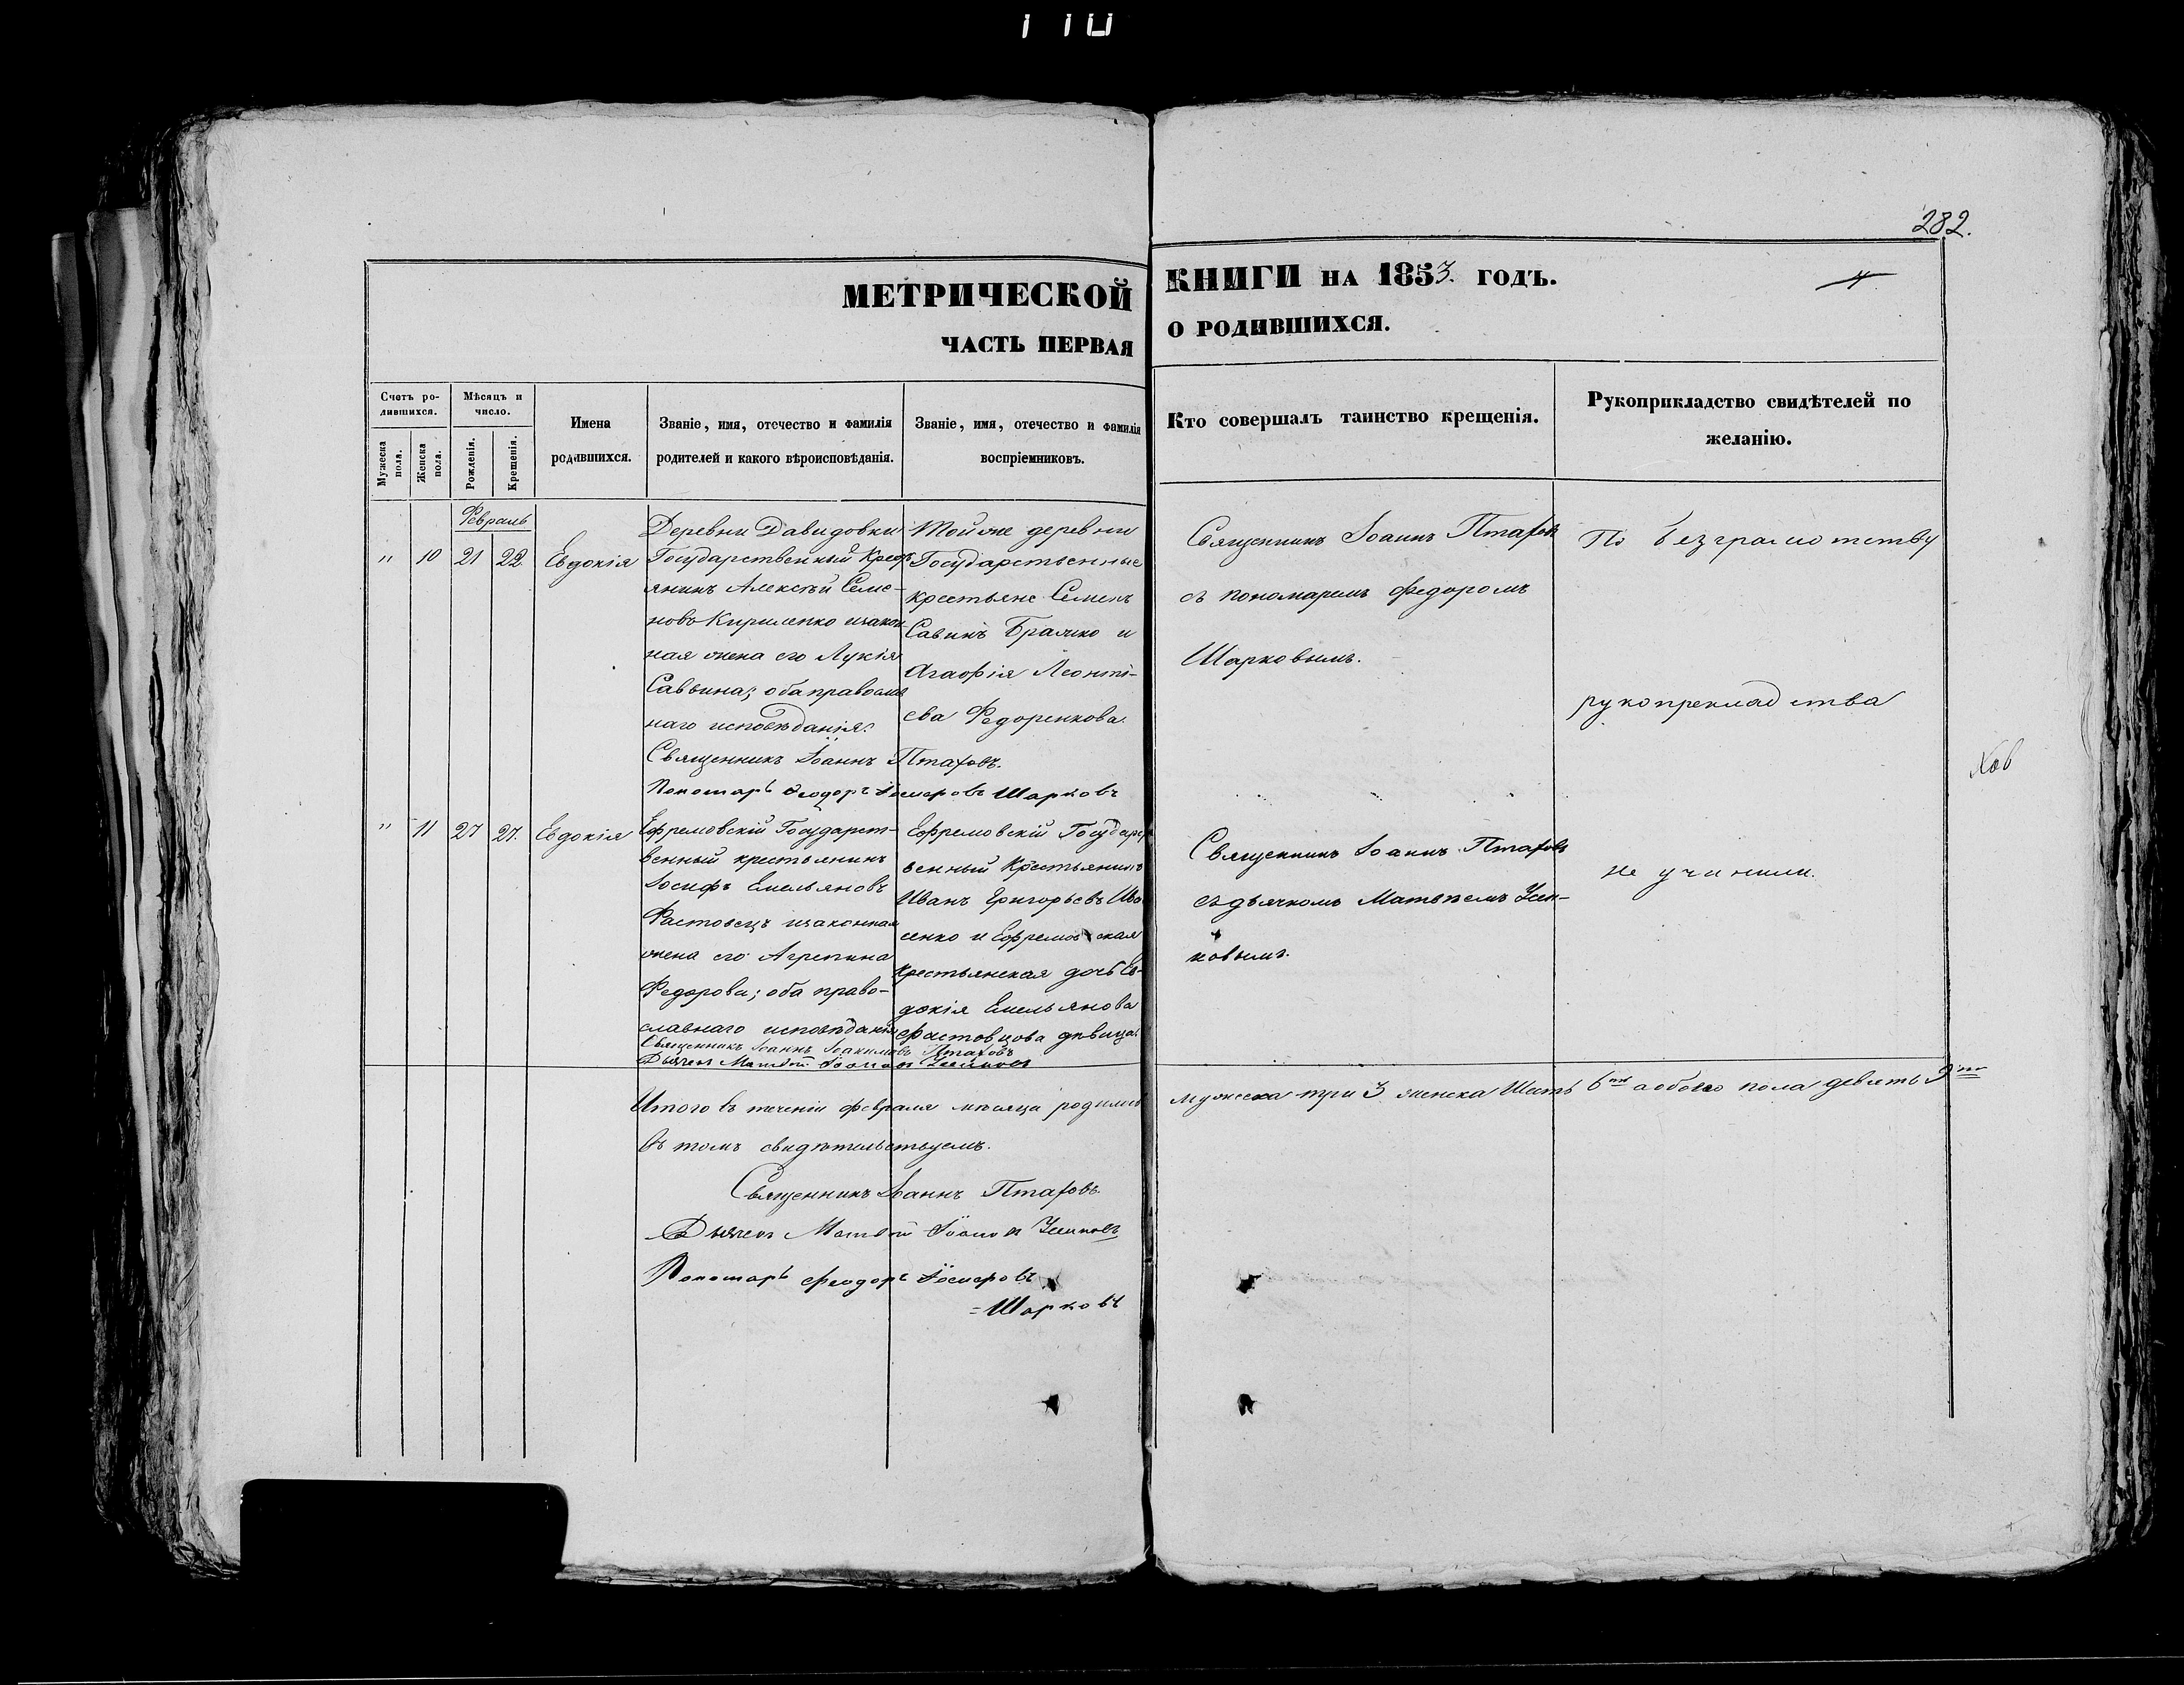 282.
МЕТРИЧЕСКОЙ КНИГИ НА 1853. ГОДЪ.
4
ЧАСТЬ ПЕРВАЯ О РОДИВШИХСЯ.
Счетъ ро-
дившихся.
Мужеска
пола.
Женска
пола.
Мѣсяцъ и
число.
Рожденія.
Крещенія.
Имена
родившихся.
Званіе, имя, отечество и фамилія
родителей и какого вѣроисповѣданія.
Званіе, имя, отечество и фамилія
воспріемниковъ.
Кто совершалъ таинство крещенія.
Рукоприкладство свидѣтелей по
желанію.
Февраль
" 10 21 22 Евдокія
Деревни Давидовки
Государственный Крест
янинъ Алексѣй Семе-
новъ Кириленко изакон
ная жена его Лукія
Саввина; оба православ
наго исповѣданія.
Тойже деревни
Государственные
крестьяне Семенъ
Савинъ Бражко и
Агафія Леонті-
ева Федоренкова.
Священникъ Іоаннъ Птаховъ
съ пономаремъ Федоромъ
Шарковымъ.
По безграмотству
рукопрекладства
Священникъ Іоаннъ Птаховъ.
Пономарь Феодоръ Шарковъ
" 11 27 27. Евдокія
Ефремовскій Государст-
венный крестьянинъ
Іосифъ Емельяновъ
Фастовецъ изаконная
жена его Агрепина
Федорова; оба право-
славнаго исповѣданія
Ефремовскій Государст
венный Крестьянинъ
Иванъ Григорьевъ
сенко и Ефремовская
крестьянская дочь Ев-
докія Емельянова
Фастовцова дѣвица.
Священникъ Іоаннъ Птаховъ
съ дьячкомъ Матвѣемъ Усен-
ковымъ.
не учинили.
Священникъ Іоаннъ Іоакимовъ Птаховъ
Дьячекъ
Итого въ теченіи февраля мѣсяца родилось мужеска три 3 женска Шесть 6 а обоего пола девять 9
въ томъ свидѣтельствуемъ.
Священникъ Іоаннъ Птаховъ.
Дьячекъ
Пономарь Феодоръ
=Шарковъ